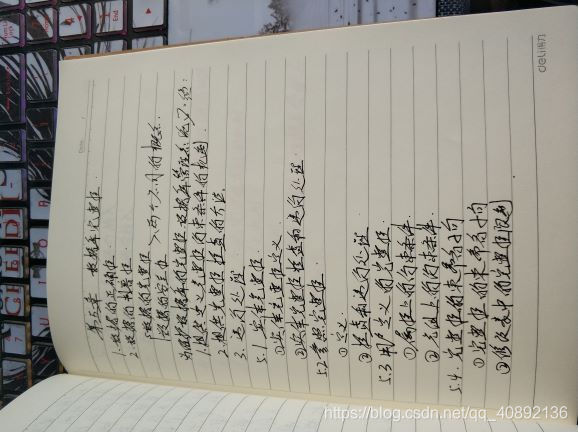 第五章 数据库完整性
1.数据的正确性
2.数据的相容性
数据的完整性
数据的安全性 >两个不同的概念.
为维护数据库的完整性,数据库管理系统必须:
1.提供定义完整性约束条件的机制
2.提供完整性检查的方法
3.违约处理
5.1 实体完整性
①实体完整性定义
②实体完整性检查和违约处理
5.2 参照完整性
①定义
②检查和违约处理
5.3 用户定义的完整性
①属性上的约束条件
②元组上的约束条件
5.4. 完整性约束命名子句
①完整性约束命名子句
②修改表中的完整性限制
deli得力
https://blog.csdn.net/qq_40892136